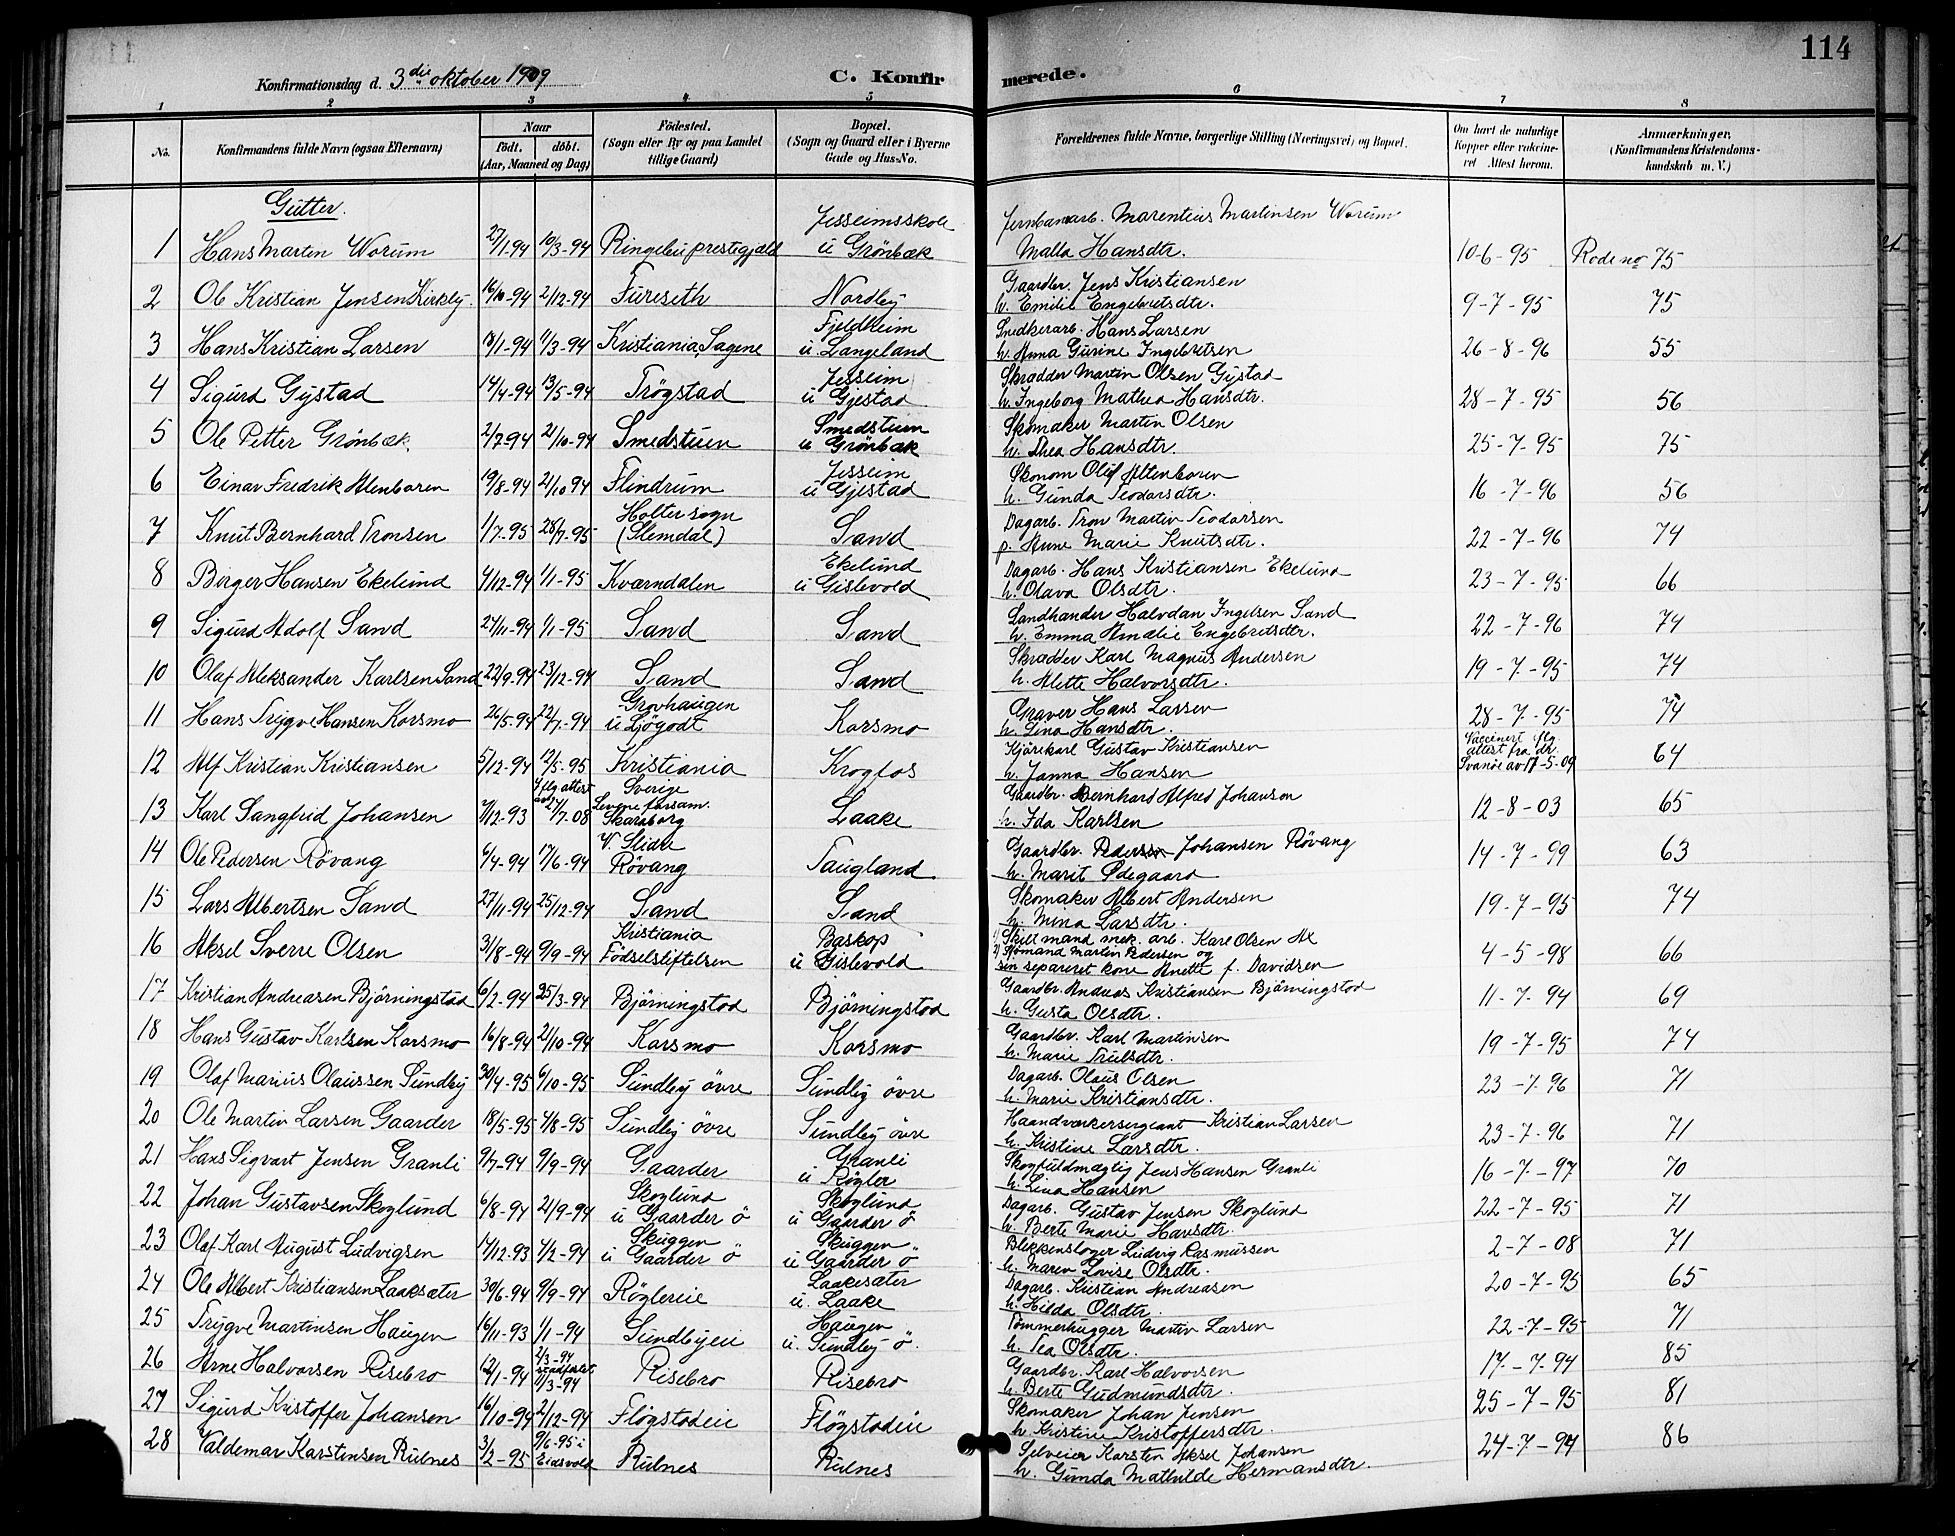 114
Konfirmationsdag d. 3die oktober 1909
C. Konfirmerede.
1 2 3 4 5 6 7 8
No.
Konfirmandens fulde Navn (ogsaa Efternavn)
Naar
født. døbt.
(Aar, Maaned og Dag)
Fødested.
(Sogn eller By og paa Landet
tillige Gaard)
Bopæl.
(Sogn og Gaard eller i Byerne
Gade og Hus-No.
Forældrenes fulde Navne, borgerlige Stilling (Næringsvei) og Bopæl.
Om havt de naturlige
Kopper eller vaccine-
ret Attest herom.
Anmærkninger,
(Konfirmandens Kristendoms-
kundskab m. V.)
Gutter.
1 Hans Martin Worum 27/1-94 10/3-94 Ringebu prestegjæld Jesseimsskole u Grönbæk Jernbanearb. Marentius Martinsen Worum
Malla Hansdtr. 10-6-95 Rode no 75
2 Ole Kristian Jensen Kirkeby 16/10-94 2/12-94 Furuseth Nordby Gaardbr. Jens Kristiansen
h. Emilie Engebretsdtr. 9-7-95 75
3 Hans Kristian Larsen 18/1-94 11/3-94 Kristiania, Sagene Fjeldheim u Langeland Snedkerarb. Hans Larsen
h. Anna Gurine Ingebretsen 26-8-96 55
4 Sigurd Gystad 14/4-94 13/5-94 Trögstad Jesseim u Gjestad Skrædder Martin Olsen Gystad
h. Ingeborg Mathea Hansdtr. 28-7-95 56
5 Ole Petter Grönbæk 2/7-94 21/10-94 Smedstuen Smedstuen u Grönbæk Skomaker Martin Olsen
h. Thea Hansdtr. 25-7-95 75
6 Einar Fredrik Altenboren 19/8-94 21/10 94 Flindrum Jesseim u Gjestad Skonom Oluf Altenboren
h. Gunda Teodorsdtr. 16-7-96 56
7 Knut Bernhard Tronsen 1/7-95 28/7-95 Holter sogn (Slemdal) Sand Dagarb. Tron Martin Teodorsen
p. Anne Marie Knutsdtr. 22-7-96 74
8 Birger Hansen Ekelund 4/12-94 1/1-95 Kværndalen Ekelund u Gislevold Dagarb. Hans Kristiansen Ekelund
h. Olava Olsdtr. 23-7-95 66
9 Sigurd Adolf Sand 27/11-94 1/1-95 Sand Sand Landhandler Halvdan Ingelsen Sand
h. Emma Amalie Engebretsdtr. 22-7-96 74
10 Olaf Aleksander Karlsen Sand 22/9-94 23/12-94 Sand Sand Skrædder Karl Magnus Andersen
h. Alette Halvorsdtr. 19-7-95 74
11 Hans Trygve Hansen Korsmo 26/5-94 22/7-94 Grovhaugen u Ljögodt Korsmo Graver Hans Larsen
h. Lina Hansdtr. 28-7-95 74
12 Alf Kristian Kristiansen 5/12-94 12/5-95 Kristiania Krogfos Kjörekarl Gustav Kristiansen
h. Janna Hansen Vaccinert iflg. attest fra dr. Svanöe av 17-5-09 64
13 Karl Sangfrid Johansen 7/12-93 iflg attest 27/7-08 Sverige Levene forsam. Skaraborg Laake Gaardbr. Bernhard Alfred Johanson
h. Ida Karlsen 12-8-03 65
14 Ole Pedersen Rövang 6/4-94 17/6-94 V. Slidre Rövang Taugland Gaardbr. Peder Johansen Rövang
h. Marit Ødegaard 14-7-99 63
15 Lars Albertsen Sand 27/11-94 25/12-94 Sand Sand Skomaker Albert Andersen
h. Mina Larsdtr. 19-7-95 74
16 Aksel Sverre Olsen 31/8-94 9/9-94 Kristiania Födselstiftelsen Baskop u Gislevold 1) Skill mand mek. arb. Karl Olsen
2) Sömand Martin Pedersen og
sin separeret kone Anette f. Davidsen 4-5-98 66
17 Kristian Andreasen Björningstad 6/2-94 25/3-94 Björningstad Björningstad Gaardbr. Andreas Kristiansen Björningstad
h. Gusta Olsdtr. 11-7-94 69
18 Hans Gustav Karlsen Korsmo 16/8-94 21/10-94 Korsmo Korsmo Gaardbr. Karl Martinsen
h. Marie Trulsdtr. 19-7-95 74
19 Olaf Marius Olaussen Sundby 30/4-95 6/10-95 Sundby övre Sundby övre Dagarb. Olaus Olsen
h. Marie Kristiansdtr. 23-7-96 71
20 Ole Martin Larsen Gaarder 18/5-95 4/8-95 Sundby övre Sundby övre Haandverkersergeant Kristian Larsen
h. Kristine Larsdtr. 23-7-96 71
21 Hans Sigvart Jensen Granli 9/7-94 9/9-94 Gaarder Granli u Rögler Skogfuldmægtig Jens Hansen Granli
h. Lina Hansen 16-7-97 70
22 Johan Gustavsen Skoglund 6/8-94 21/9-94 Skoglund u Gaarder ö Skoglund u Gaarder ö Dagarb. Gustav Jensen Skoglund
h. Berte Marie Hansdtr. 22-7-95 71
23 Olaf Karl August Ludvigsen 14/12-93 4/2-94 Skuggen u Gaarder ö Skuggen u Gaarder ö Blekkenslager Ludvig Rasmussen
h. Maren Lovise Olsdtr. 2-7-08 71
24 Ole Albert Kristiansen Laaksæter 30/6-94 9/9-94 Röglereie Laakesæter u. Laake Dagarb. Kristian Andreasen
h. Hilda Olsdtr. 20-7-95 65
25 Trygve Martinsen Haugen 16/11-93 1/1-94 Sundbyeie Haugen u. Sundby ö. Tömmerhugger Martin Larsen
h. Tea Olsdtr. 22-7-95 71
26 Arne Halvorsen Risebro 12/1-94 2/3-94 stadfæstet 11/3-94 Risebro Risebro Gaardbr. Karl Halvorsen
h. Berte Gudmundsdtr. 17-7-94 85
27 Sigurd Kristoffer Johansen 16/10-94 2/12-94 Flögstadeie Flögstadeie Skomaker Johan Jensen
h. Kristine Kristoffersdtr. 25-7-95 81
28 Valdemar Karstensen Rulnes 3/2-95 9/6-95 i Eidsvold Rulnes Rulnes Selveier Karsten Aksel Johansen
h. Gunda Mathilde Hermansdtr. 24-7-94 86